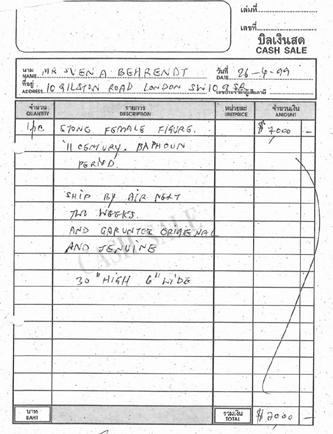 เล่มที่
เลขที่
บิลเงินสด
CASH SALE
นาม NAME MR SVEN A BEHRENDT วันที่ DATE 26-4-99
ที่อยู่ ADDRESS 10 GILSTON ROAD LONDON SW10 9SR
จำนวน QUANTITY รายการ DESCRIPTION หน่วยละ UNITPRICE จำนวนเงิน AMOUNT
1 pc STONE FEMALE FIGURE. $ 7,000 -
11 CENTURY. BAPHOUN
PERIOD.
SHIP BY AIR NEXT
TWO WEEKS.
AND GARUNTEE ORIGENAL
AND JENUINE
30" HIGH 6" WIDE
CASH SALE
บาท BAHT รวมเงิน TOTAL